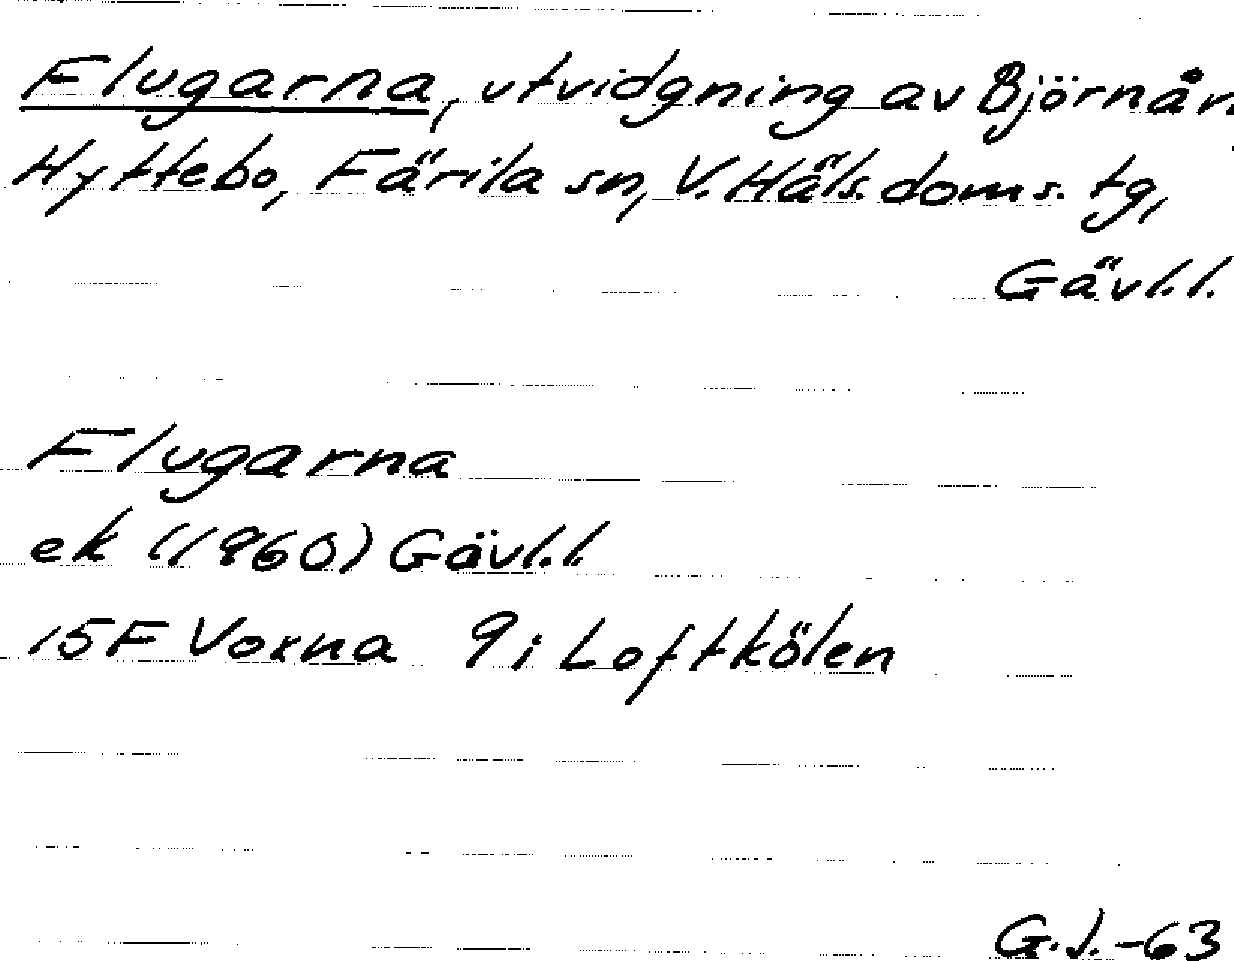 Flugarna, utvidgning av Björnån
Hyttebo, Färila sn, V. Häls. doms. tg,
Gävl.l.
Flugarna
ek (1960) Gävl.l.
15F Voxna 9i Loftkölen
G.J.-63